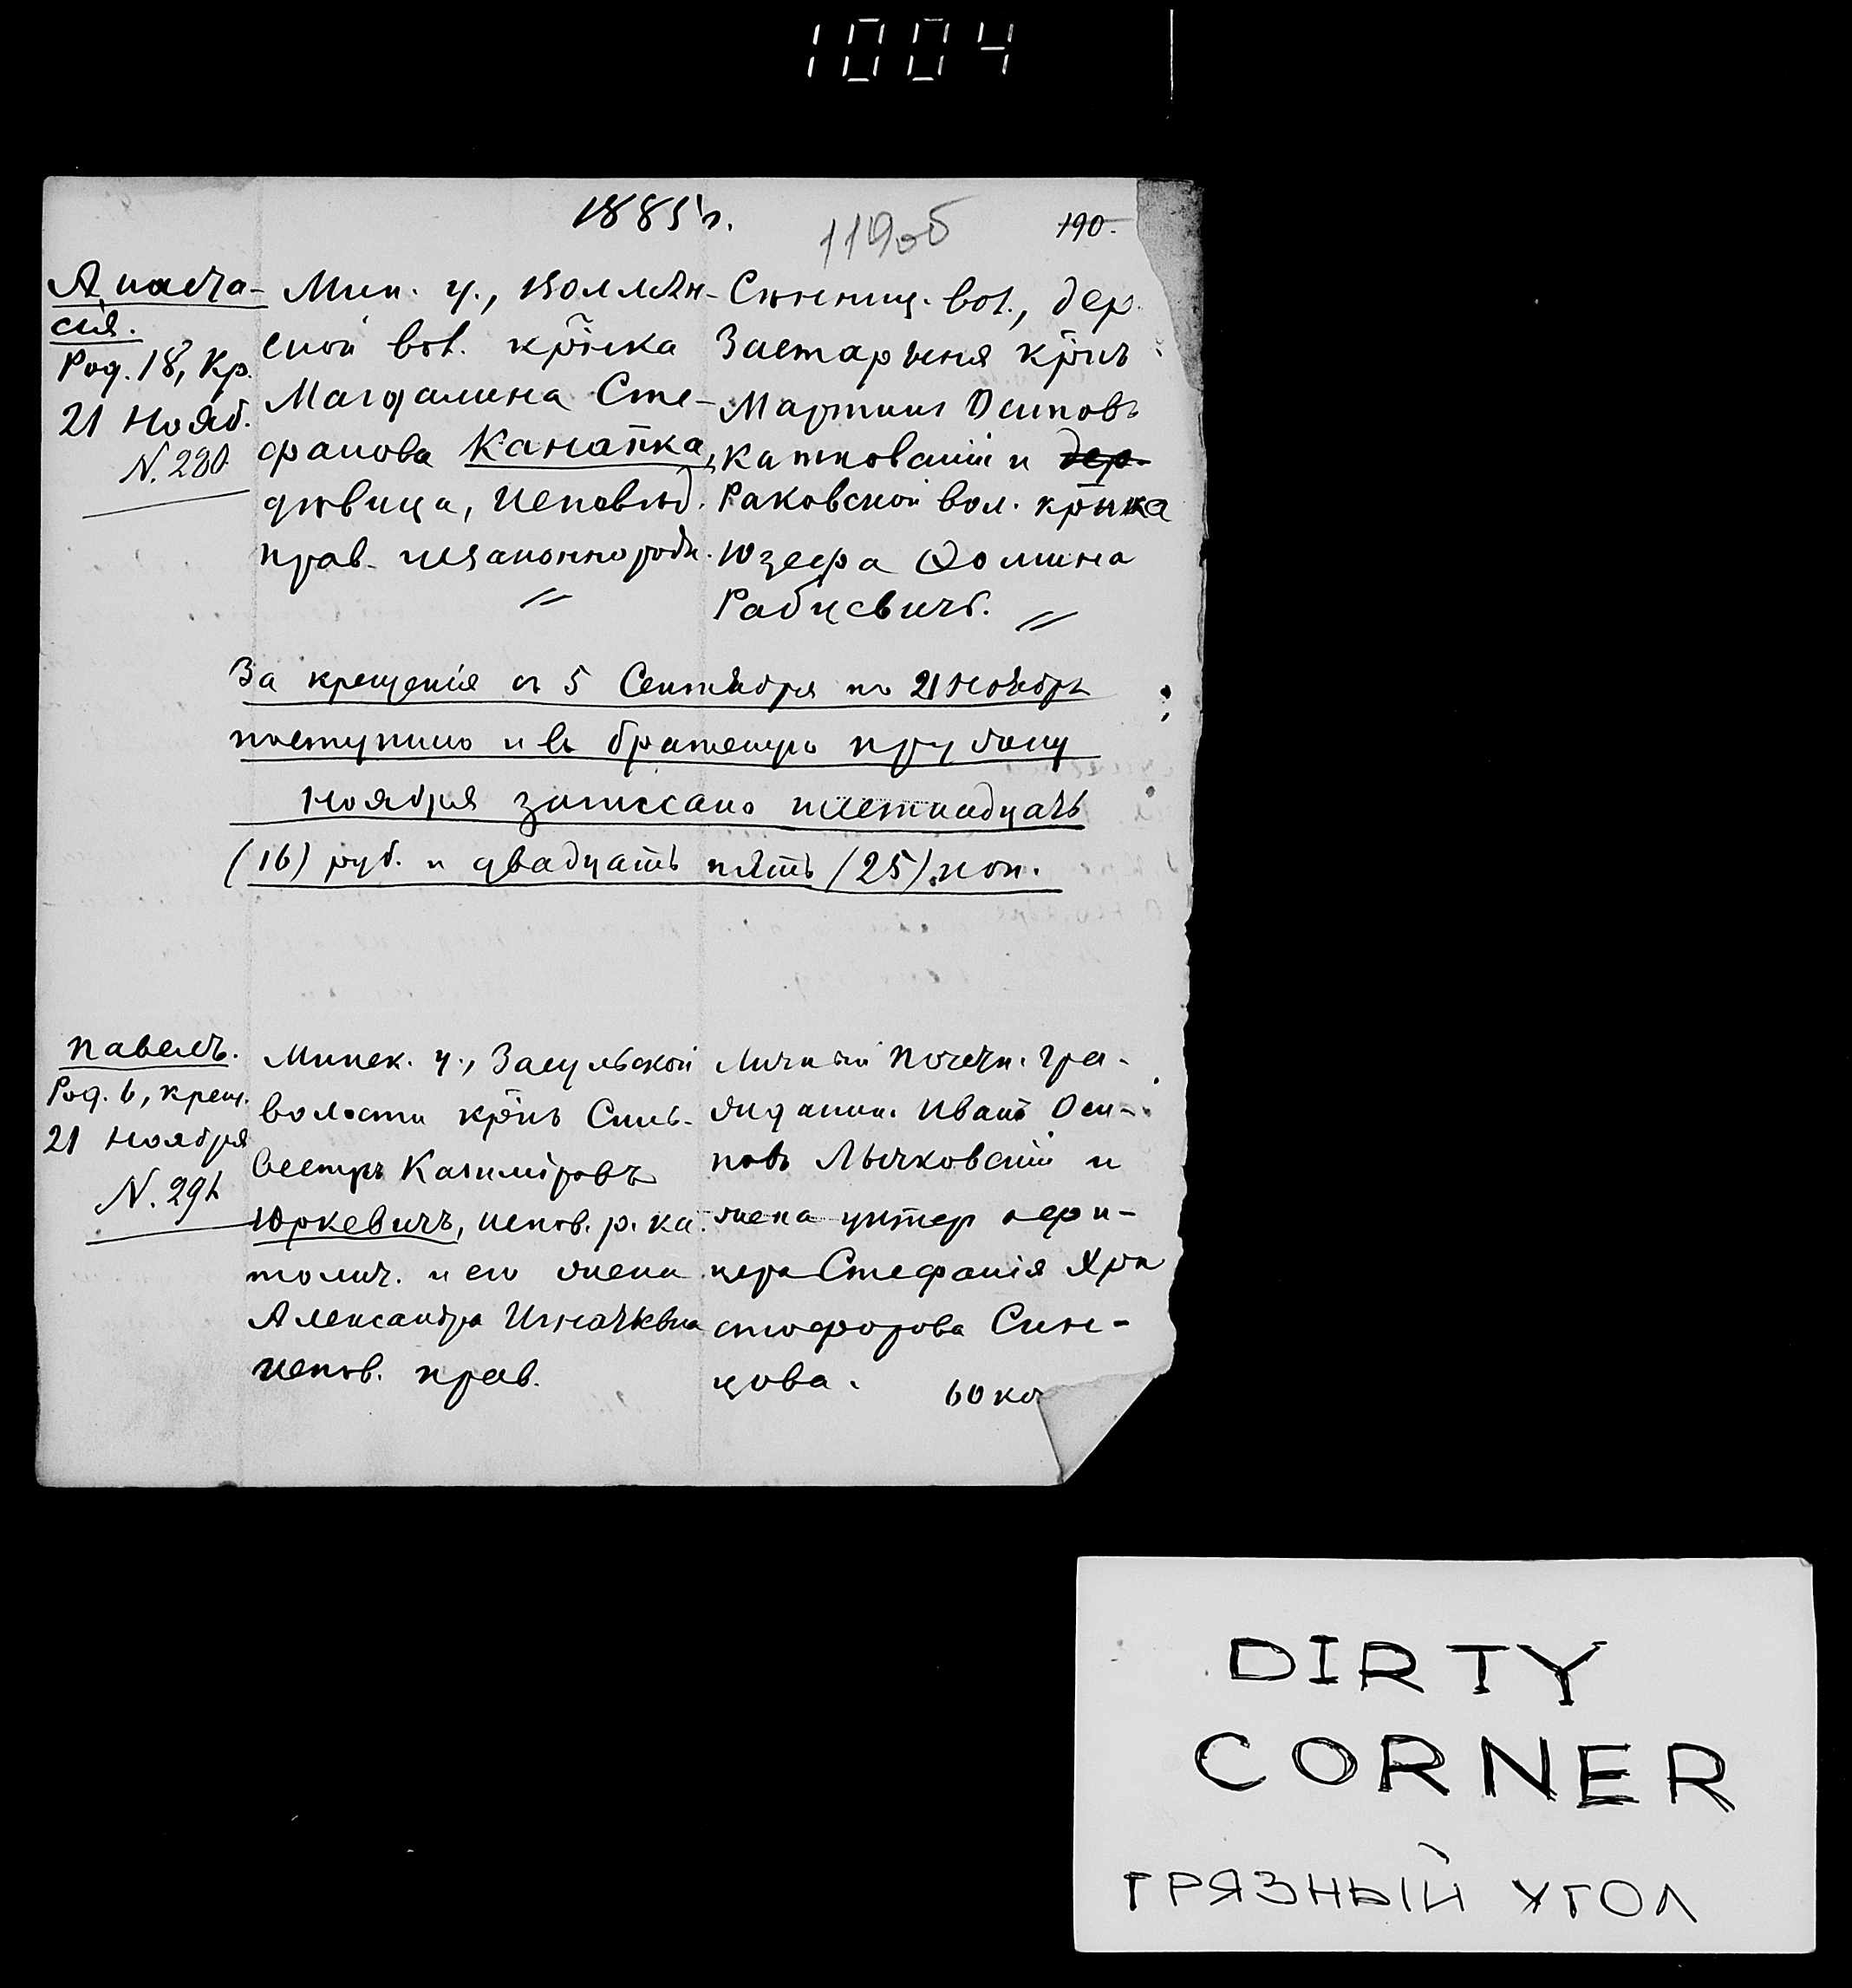 1004
1885 г.
119об
190.
Анаста-
сія.
Род. 18, Кр.
21 Нояб.
N. 290
Мин. у., Коллѣн-
ской вол. кр̃нка
Магдалина Сте-
фанова Канапка,
дѣвица, исповѣд.
прав. незаконнорожд.
Сѣнниц. вол., дер.
Застарыня кр̃нъ
Мартинъ Осиповъ
Катковскій и дер.
Раковской вол. кр̃нка
Юзефа Фомина
Рабцевичъ.
За крещенія съ 5 Сентября по 21 Ноября
поступило и въ братскую кружку
Ноября записано шестнадцать
(16) руб. и двадцать пять (25) коп.
Павелъ.
Род. 6, крещ.
21 Ноября
N. 291
Минск. у., Засульской
волости кр̃нъ Силь-
вестръ Казиміровъ
Юркевичъ, испов. р. ка-
толич. и его жена
Александра Игнатьевна
испов. прав.
Личный Почетн. гра-
жданин. Иванъ Оси-
повъ Лычковскій и
жена унтер офи-
цера Стефанія Хри
стофорова Син-
цова.
60 ко
DIRTY
CORNER
ГРЯЗНЫЙ УГОЛ